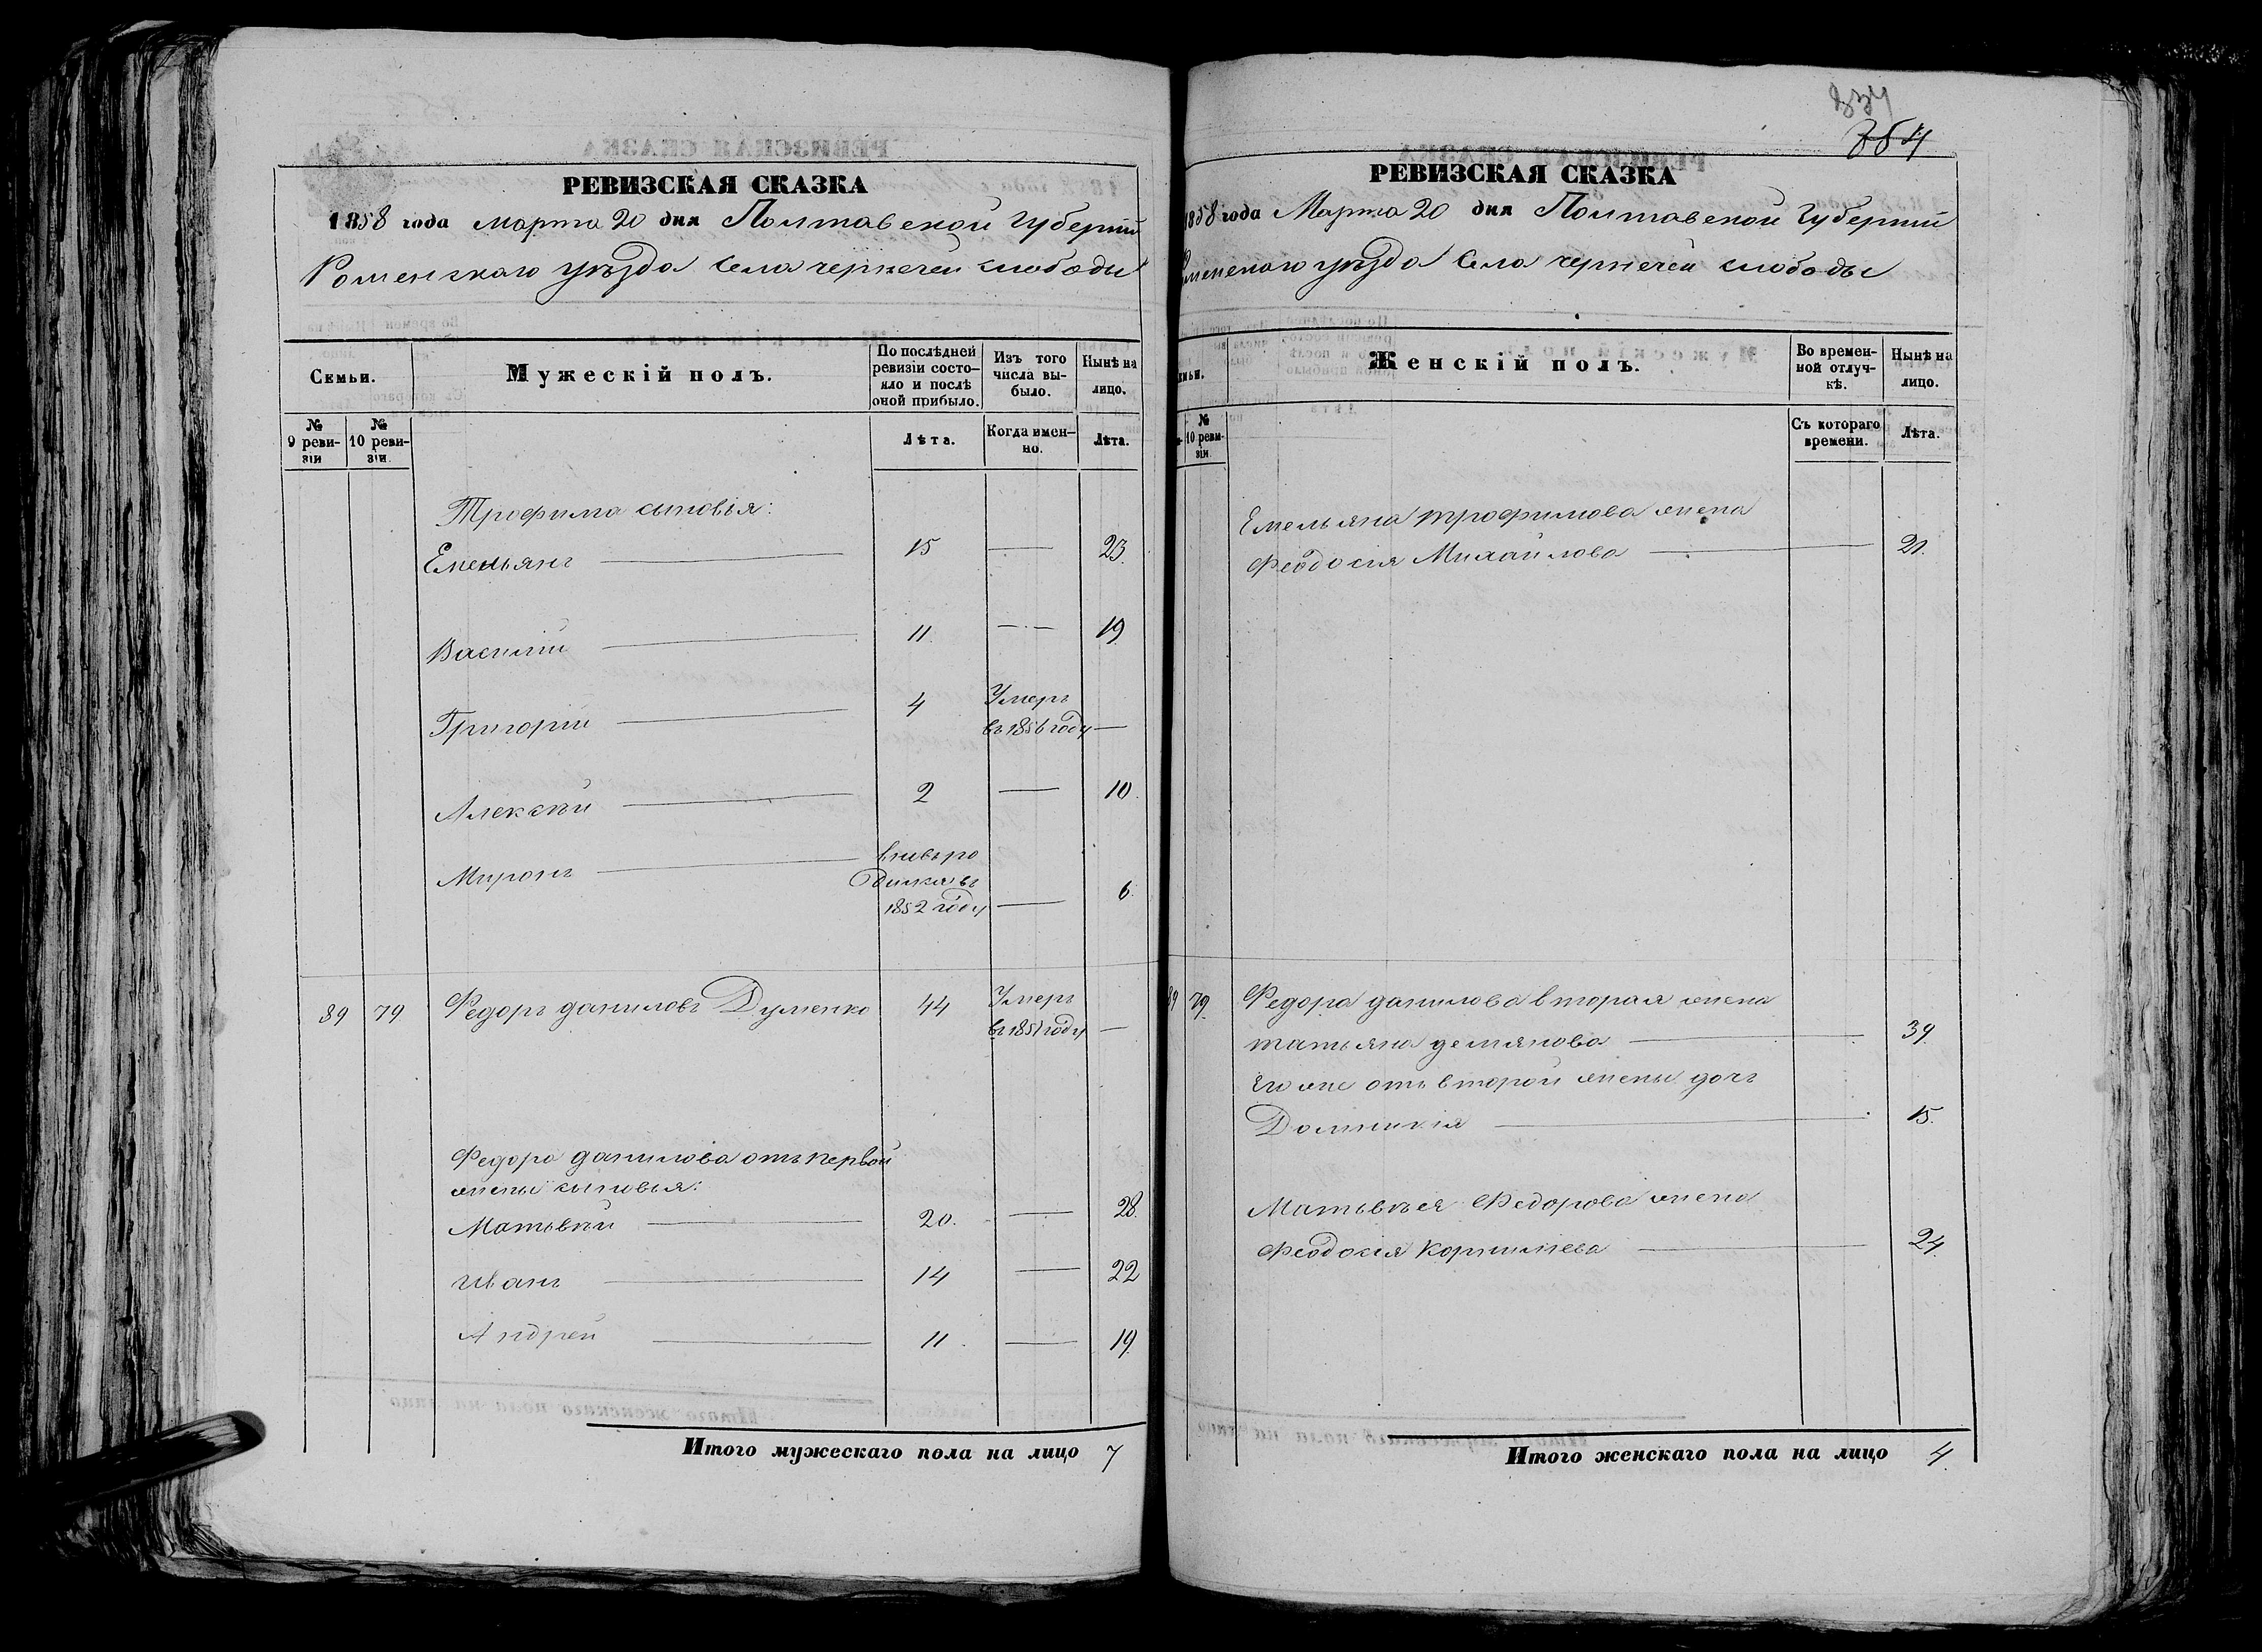 РЕВИЗСКАЯ СКАЗКА
1858 года Марта 20 дня Полтавской Губерніи
Роменскаго уѣзда Села чернечей слободы
Семьи.
Мужескій полъ.
По послѣдней ревизіи состояло и послѣ оной прибыло.
Изъ того числа выбыло.
Нынѣ на лицо.
№ 9 ревизіи
№ 10 ревизіи.
Лѣта.
Когда именно.
Лѣта.
Трофима сыновья:
Емельянъ 15 — 23.
Василій 11 — 19
Григорій 4 Умеръ въ 1856 году —
Алексѣй 2 — 10.
Миронъ вновь родился въ 1852 году — 6.
89 79 Федоръ даниловъ Думенко 44 Умеръ въ 1851 году —
Федора данилова отъ первой
жены сыновья:
Матвѣй 20. — 28.
Иванъ 14 — 22
Андрей 11 — 19.
Итого мужескаго пола на лицо 7
334
354
РЕВИЗСКАЯ СКАЗКА
1858 года Марта 20 дня Полтавской Губерніи
оменскаго уѣзда Села чернечей слободы
мьи.
Женскій полъ.
Во временной отлучкѣ.
Нынѣ на лицо.
№ 10 ревизіи.
Съ котораго времени.
Лѣта.
Емельяна трофимова жена
Феодосія Михайлова — 21.
89 79. Федора данилова вторая жена
татьяна демянова — 39.
Его же отъ второй жены дочь
Домникія — 15.
Матьвѣея Федорова жена
Феодосія Корнилиева — 24.
Итого женскаго пола на лицо 4.